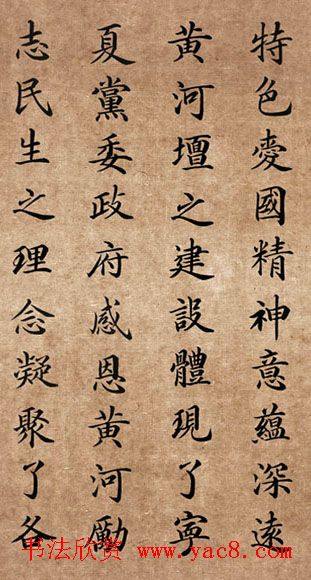 特色爱國精神意蘊深遠
黄河壇之建設體現了寧
夏黨委政府感恩黄河勵
志民生之理念凝聚了各
书法欣赏 www.yac8.com